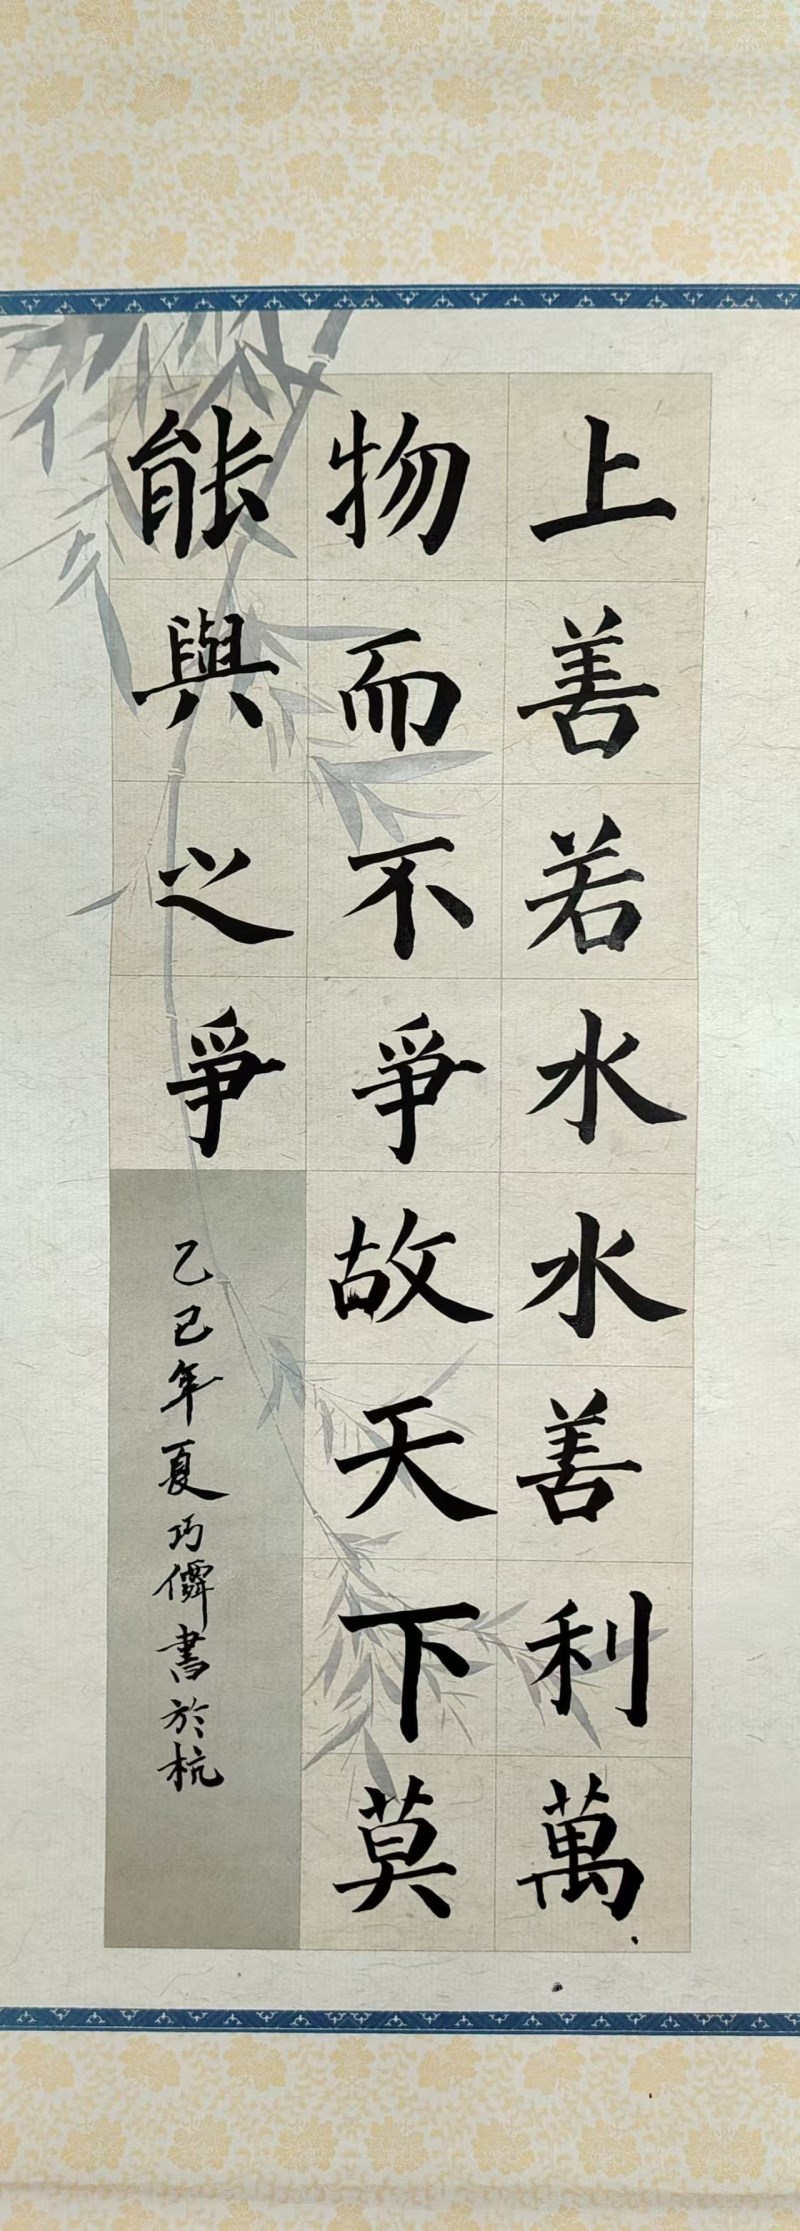 上善若水水善利萬
物而不爭故天下莫
能與之爭
乙巳年夏巧儛書於杭